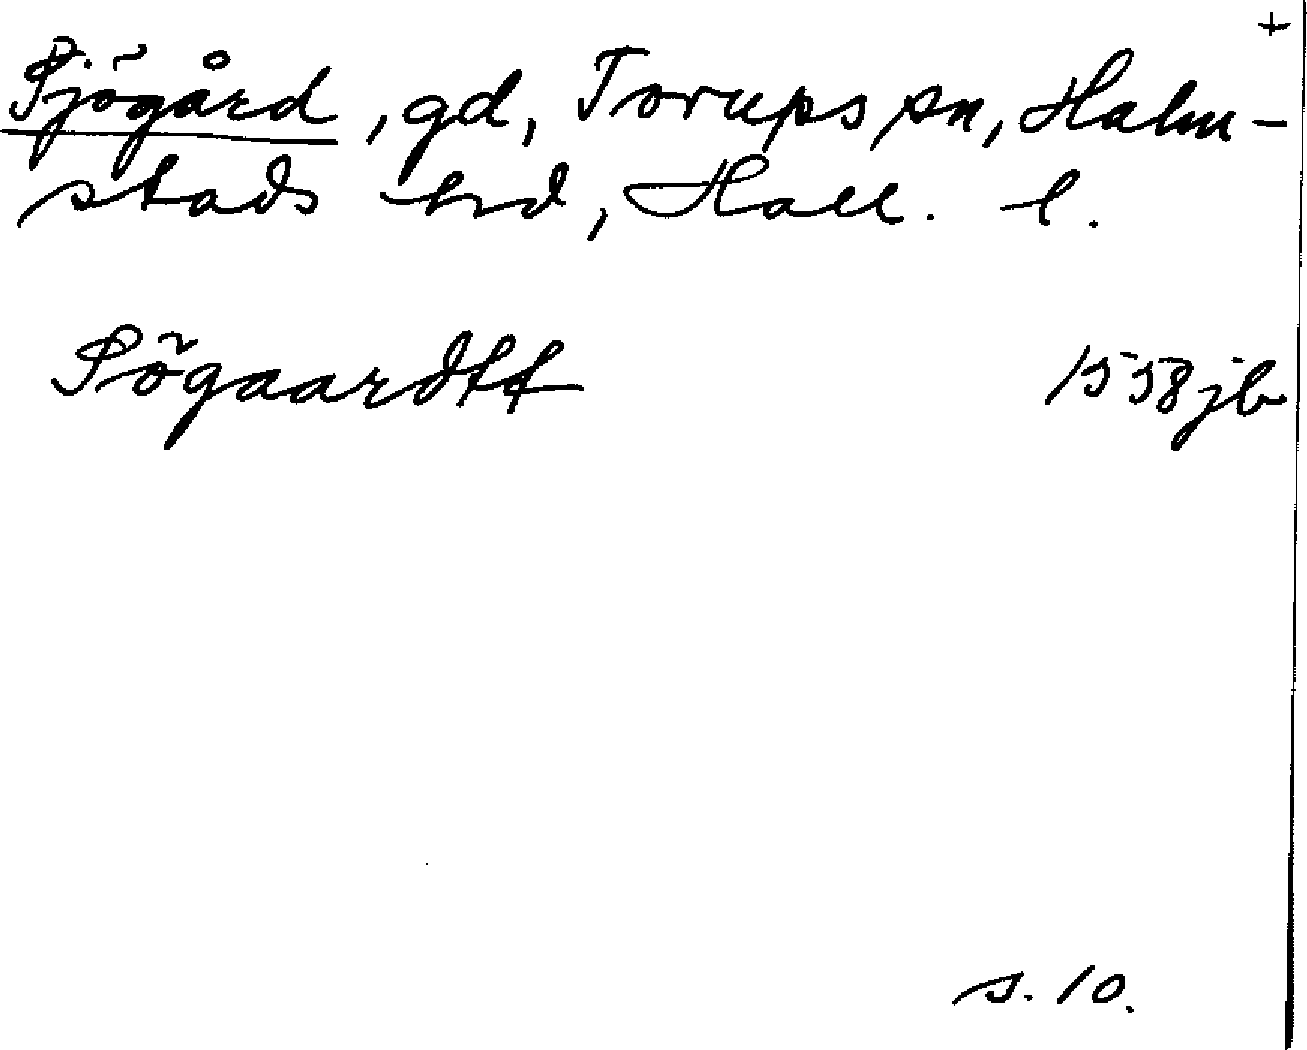 +
Sjögård, gd, Torups sn, Halm-
stads hd, Hall. l.
Sögaardtt 1558 jb
s. 10.